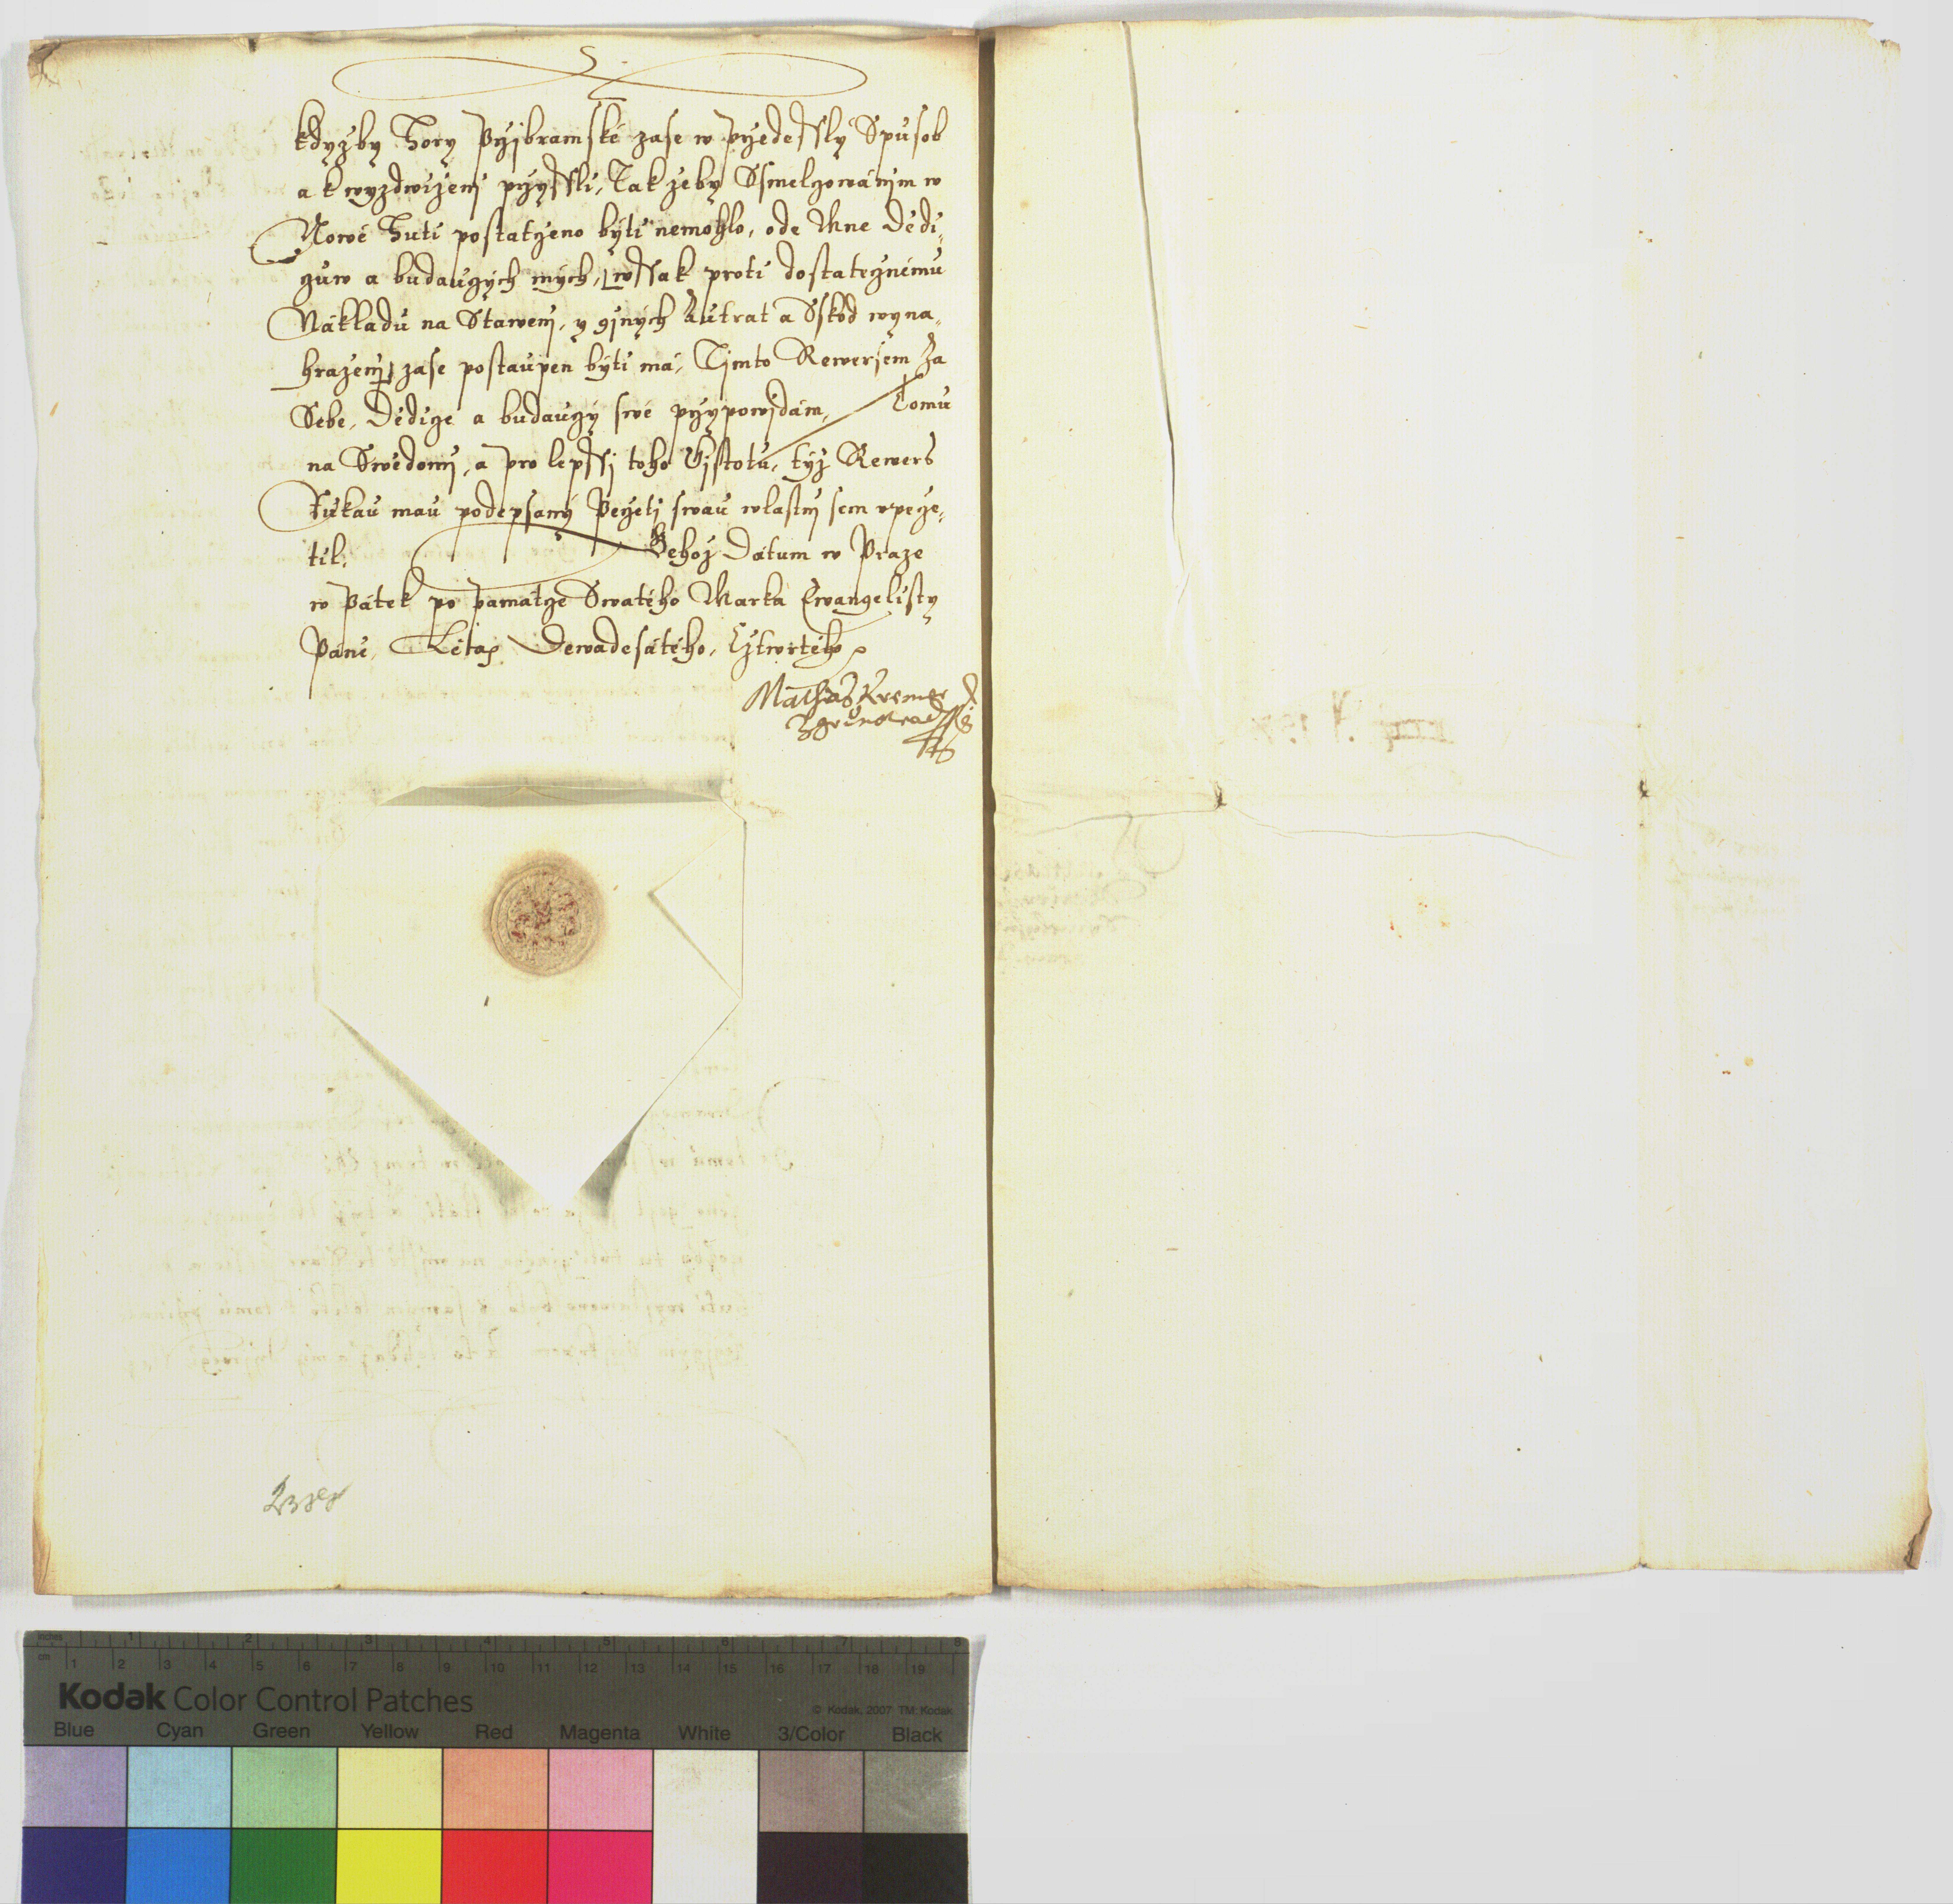 kdyžby Hory Přjbramské zase w předessly Spusob
a k wyzdwiženj přyssli, Tak žeby Ssmelcowánjm w
Nowé Huti postatčeno býti nemohlo, ode Mne Dědi,
cuw a budaucých mých, wssak proti dostatečnému
Nákladu na Stawenj, y gjných Autrat a Sskod wyna,
hraženj zase postaupen býti má, Tjmto Rewersem Za
Sebe, Dědice a budaucý swé přypowjdám, Tomu
na Swědomj, a pro lepssj toho Gjstotu, týž Rewers
Rukau mau podepsaný Pečetj swau wlastnj sem vpeče,
til. Gehož Dátum w Praze
w Pátek po Památce Swatého Marka Ewangelisty
Pánie, Létha Dewadesátého, Cžtwrtého
Mathias Kremer
Kodak Color Control Patches
© Kodak, 2007 TM: Kodak
Blue Cyan Green Yellow Red Magenta White 3/Color Black